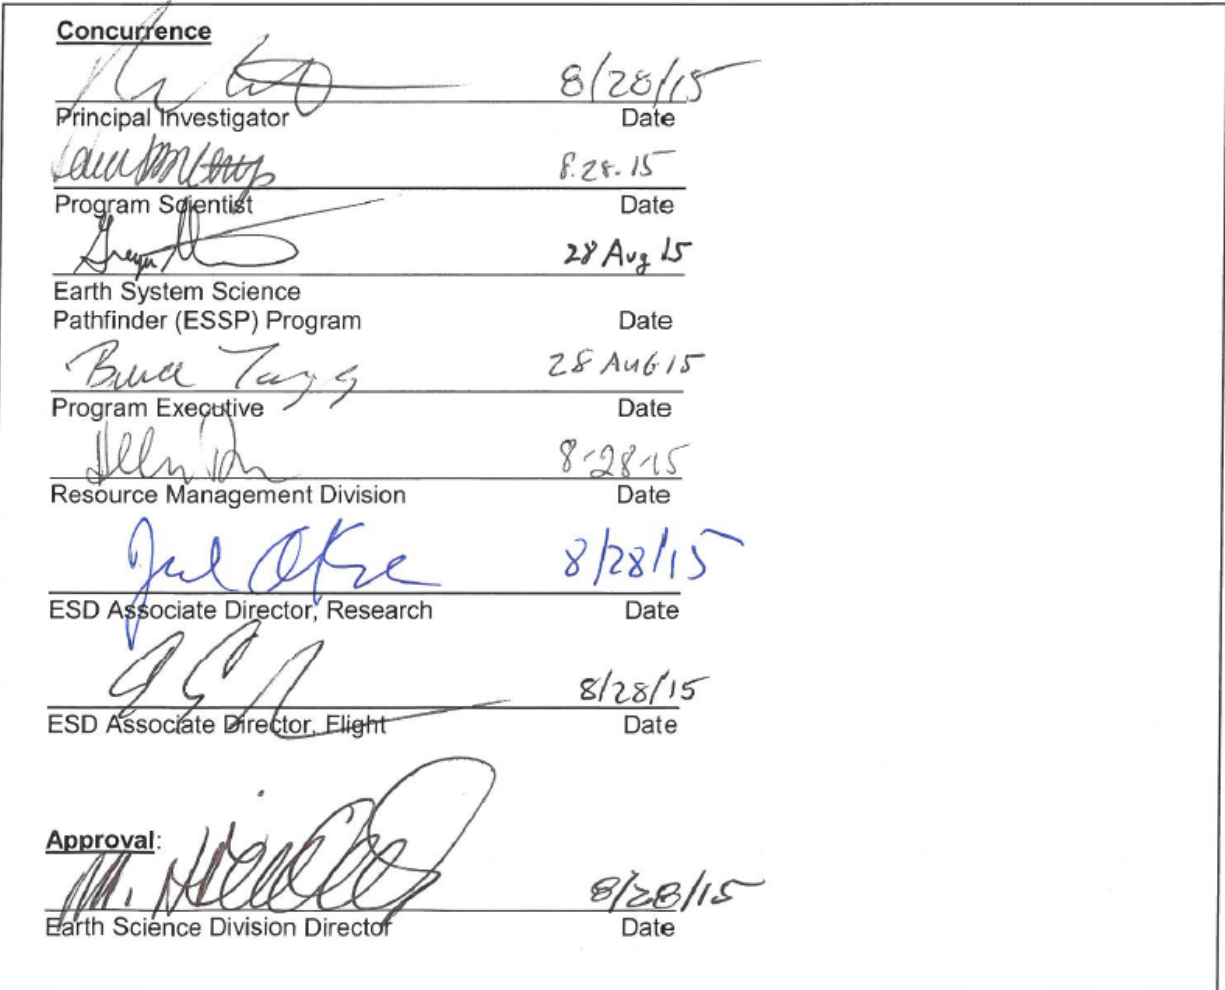 Concurrence
8/28/15
Principal Investigator Date
8.28.15
Program Scientist Date
28 Aug 15
Earth System Science
Pathfinder (ESSP) Program Date
Bruce Tagg 28 AUG 15
Program Executive Date
8-28-15
Resource Management Division Date
8/28/15
ESD Associate Director, Research Date
8/28/15
ESD Associate Director, Flight Date
Approval:
M. 8/28/15
Earth Science Division Director Date